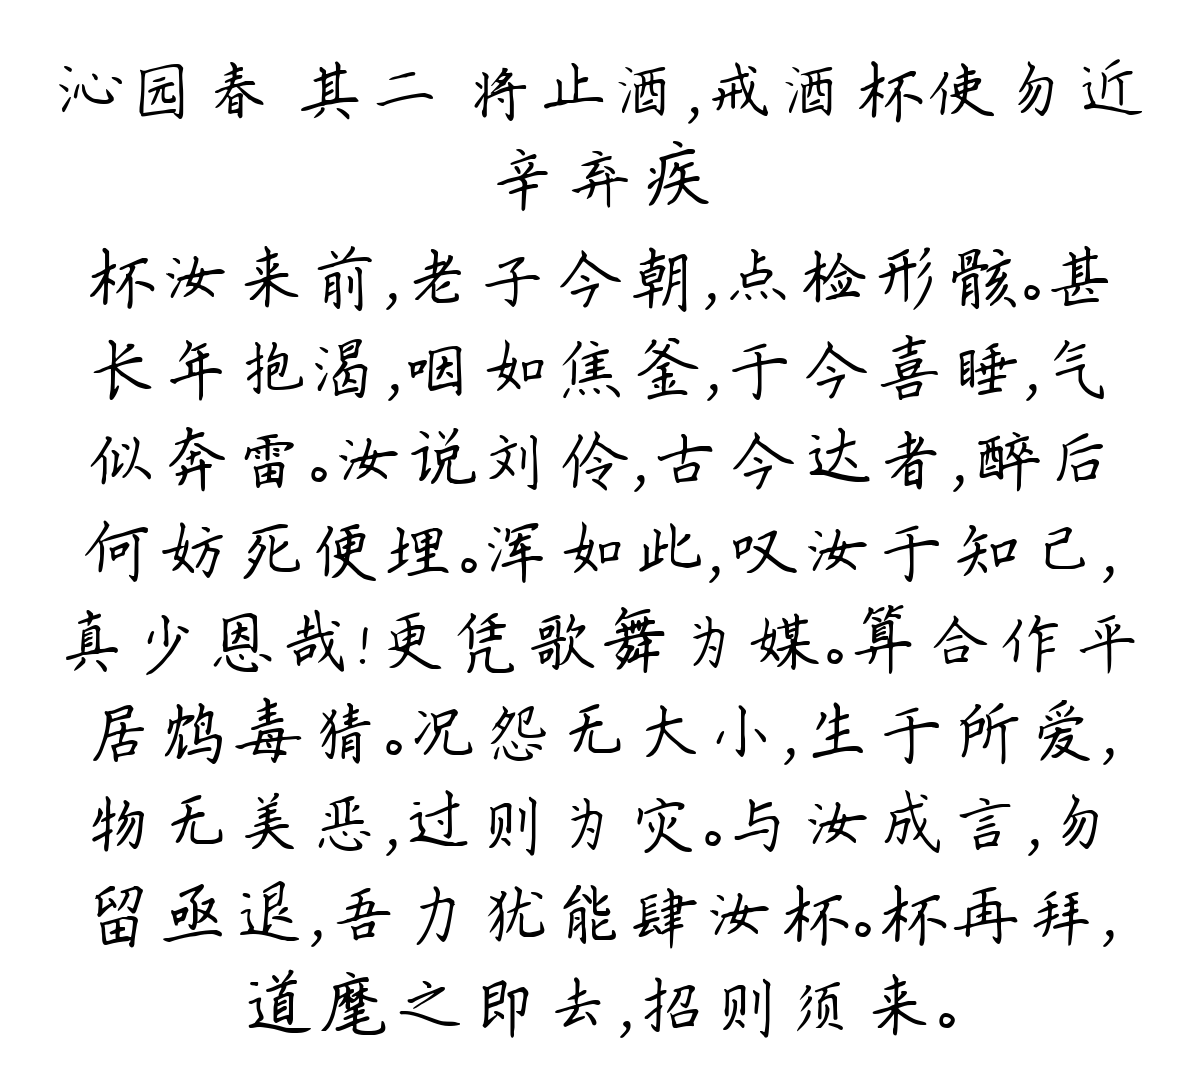 沁园春 其二 将止酒,戒酒杯使勿近
辛弃疾
杯汝来前,老子今朝,点检形骸。甚
长年抱渴,咽如焦釜,于今喜睡,气
似奔雷。汝说刘伶,古今达者,醉后
何妨死便埋。浑如此,叹汝于知己,
真少恩哉!更凭歌舞为媒。算合作平
居鸩毒猜。况怨无大小,生于所爱,
物无美恶,过则为灾。与汝成言,勿
留亟退,吾力犹能肆汝杯。杯再拜,
道麾之即去,招则须来。